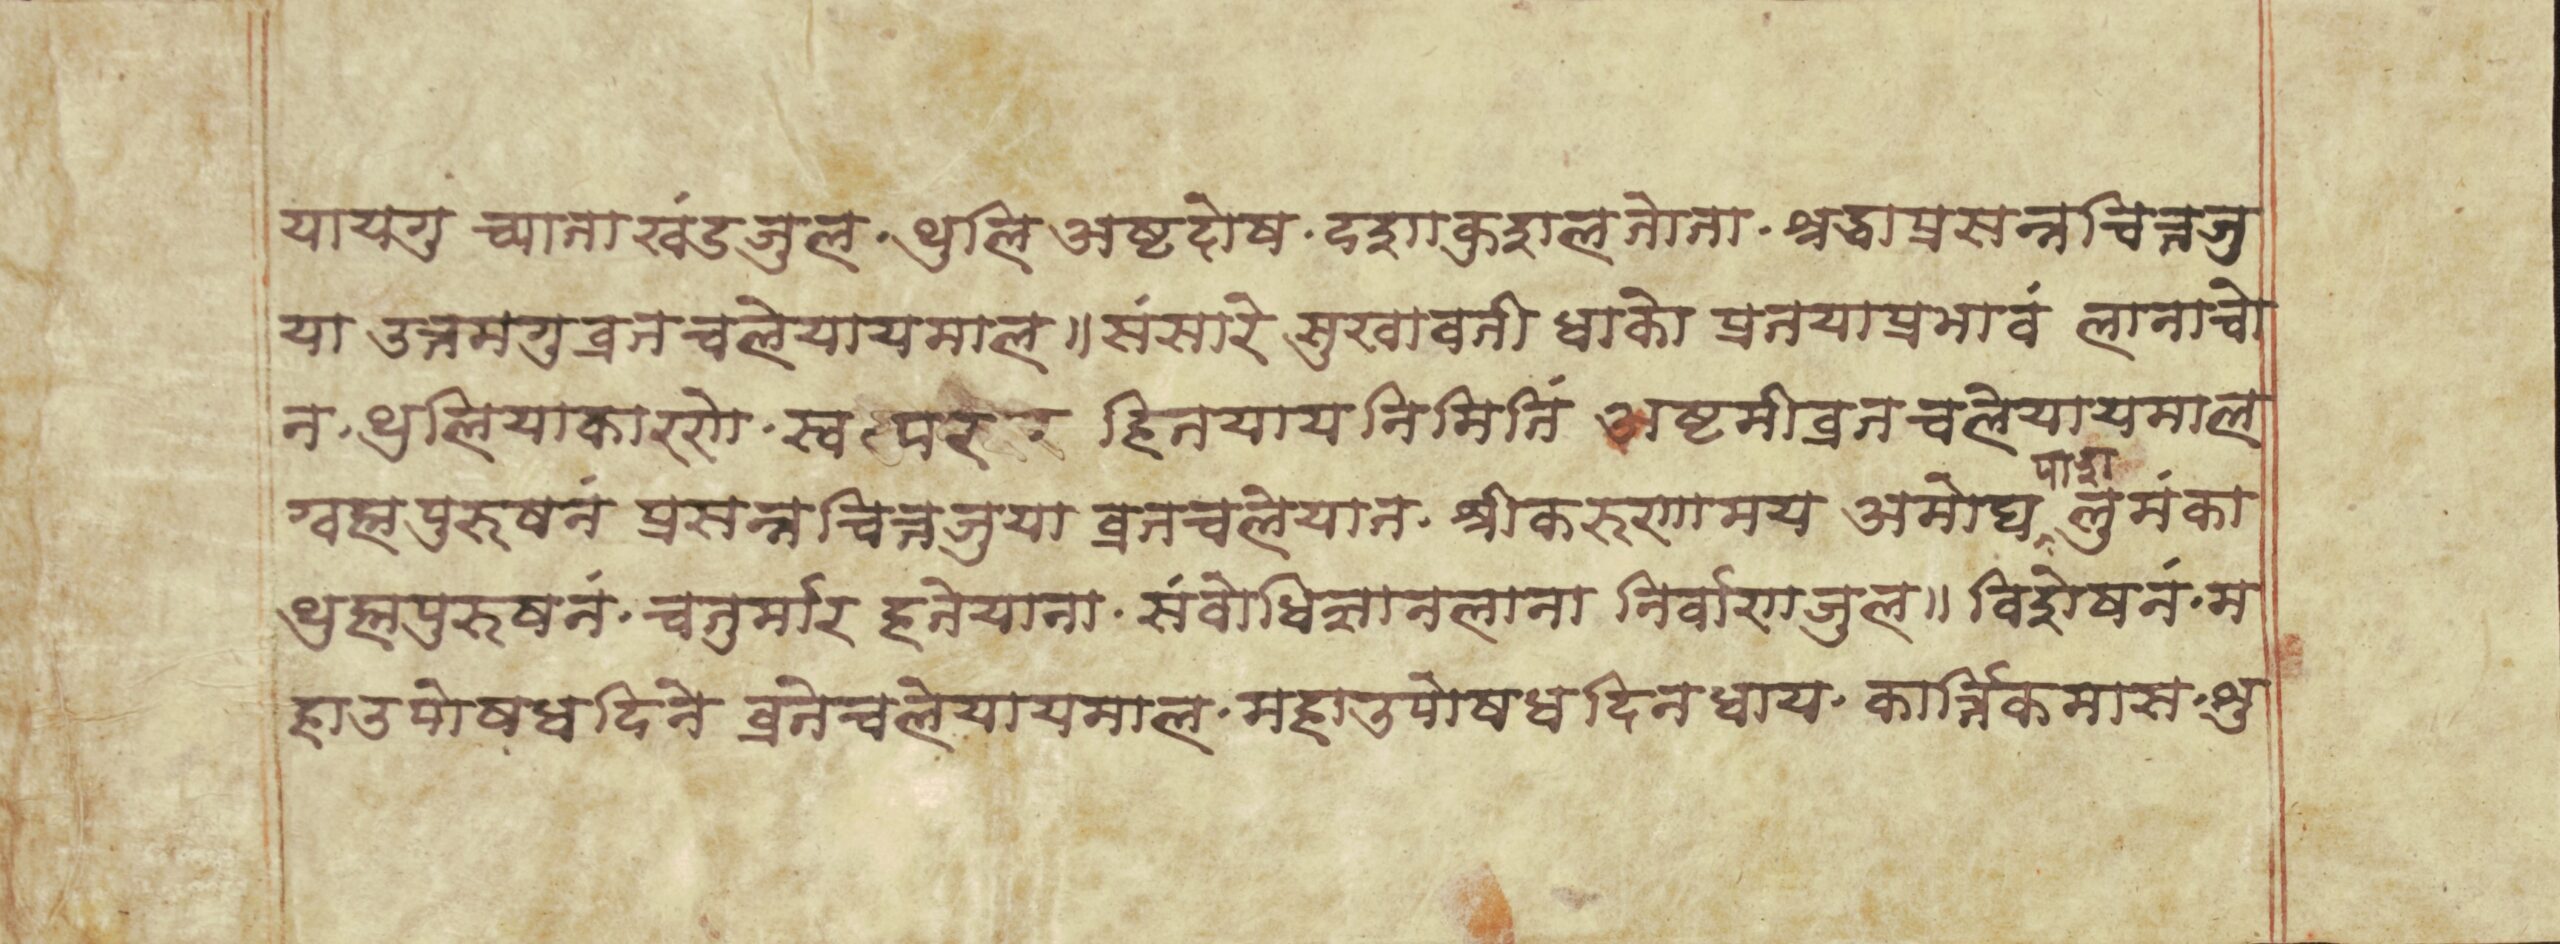 यायगु च्याता खंड जुल · थुलि अष्टदोष · दशाकुशल तोता · श्रद्धाप्रसन्नचित्तजु
या उत्तमगु व्रतचलेयायमाल ॥ संसारे सुखावती धाको प्रतयाप्रभावं लानाचो
न · थुलियाकारणे · स्व पर हितयायनिमितिं अष्टमीव्रतचलेयायमाल
ग्वह्मपुरूषनं प्रसन्नचित्तजुया व्रतचलेयात · श्रीकरूणामय अमोघपाश लुमंका
थुह्मपुरूषनं · चतुर्मार हतेयाना · संवोधिज्ञानलाना निर्वाणजुल ॥ विशेषनं · म
हाउपोषधदिने व्रतेचलेयायमाल · महाउपोषधदिनधाय · कार्त्तिकमास · शु